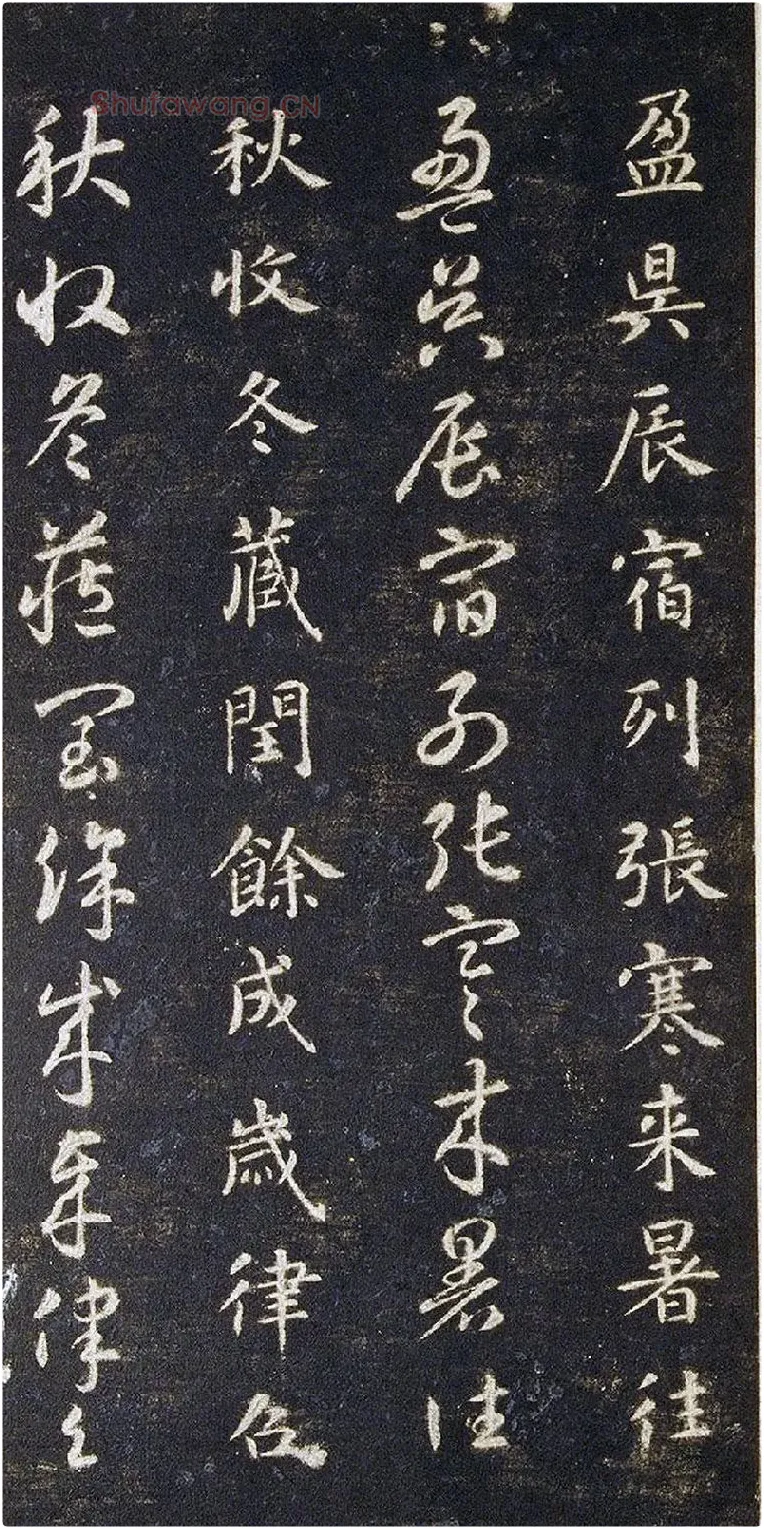 Shufawang.CN
盈昃辰宿列張寒来暑往
盈昃辰宿列張寒来暑往
秋收冬藏閏餘成歲律召
秋收冬藏閏餘成歲律召